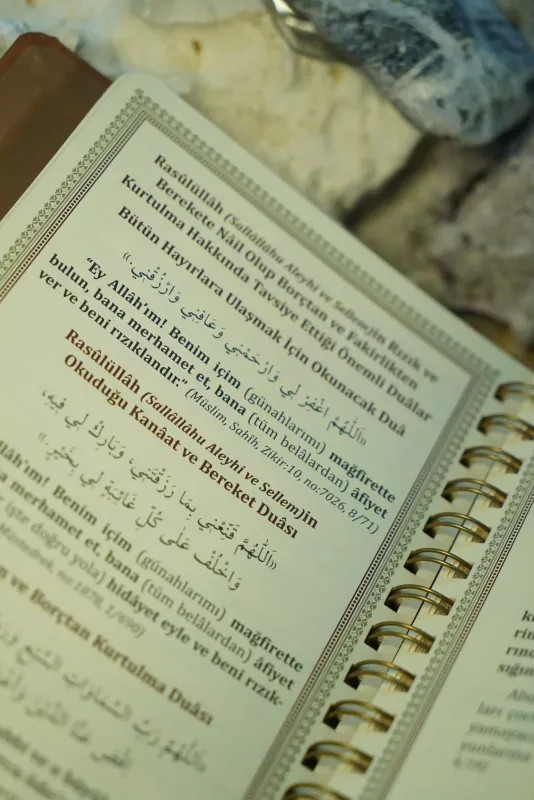 Rasûlüllâh (Sallâllâhu Aleyhi ve sellem)in Rızık ve
Berekete Nâil Olup Borçtan ve Fakirlikten
Kurtulma Hakkında Tavsiye Ettiği Önemli Duâlar
Bütün Hayırlara Ulaşmak İçin Okunacak Duâ
«اَللّٰهُمَّ اغْفِرْ لِي وَارْحَمْنِي وَعَافِنِي وَارْزُقْنِي.»
“Ey Allâh'ım! Benim için (günahlarımı) mağfirette
bulun, bana merhamet et, bana (tüm belâlardan) âfiyet
ver ve beni rızıklandır.” (Müslim, Sahîh, Zikir:10, no:7026, 8/71)
Rasûlüllâh (Sallâllâhu Aleyhi ve Sellem)in
Okuduğu Kanâat ve Bereket Duâsı
«اَللّٰهُمَّ قَنِّعْنِي بِمَا رَزَقْتَنِي، وَبَارِكْ لِي فِيهِ،
وَاخْلُفْ عَلَى كُلِّ غَائِبَةٍ لِي بِخَيْرٍ.»
Benim için (günahlarımı) mağfirette
merhamet et, bana (tüm belâlardan) âfiyet
(doğru yola) hidâyet eyle ve beni rızık-
no 1878, 1/690)
ve Borçtan Kurtulma Duâsı
«اَللّٰهُمَّ رَبَّ السَّمٰوَاتِ السَّبْعِ